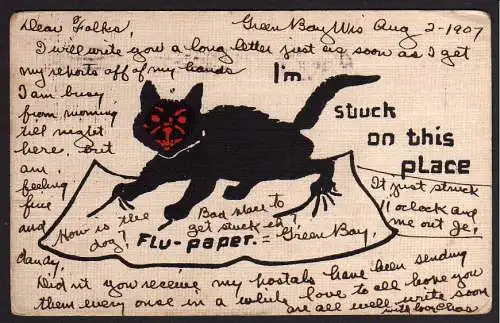 Dear Folks,
Green Bay Wis Aug 2-1907
I will write you a long letter just as soon as I get
my reports off of my hands
I am busy
from morning
till night
here, but
am
feeling
fine
and
dandy.
I'm
stuck
on this
place
It just struck
11 oclock and
me out
How is the
dog?
Bad place to
get stuck eh?
Flu-paper. = Green Bay,
Didnt you receive my postals have been sending
them every once in a while love to all hope you
are all well write soon
with love Chas